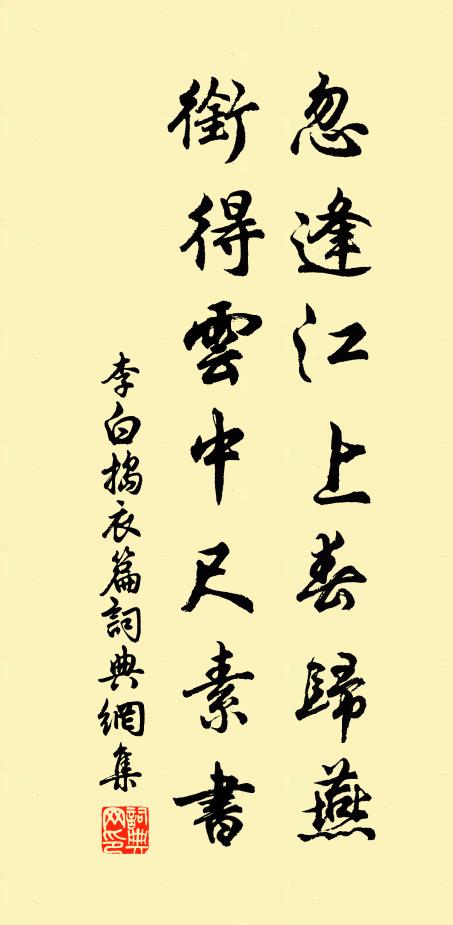 忽逢江上春歸燕
銜得雲中尺素書
李白搗衣篇詞典網集
詞典網印